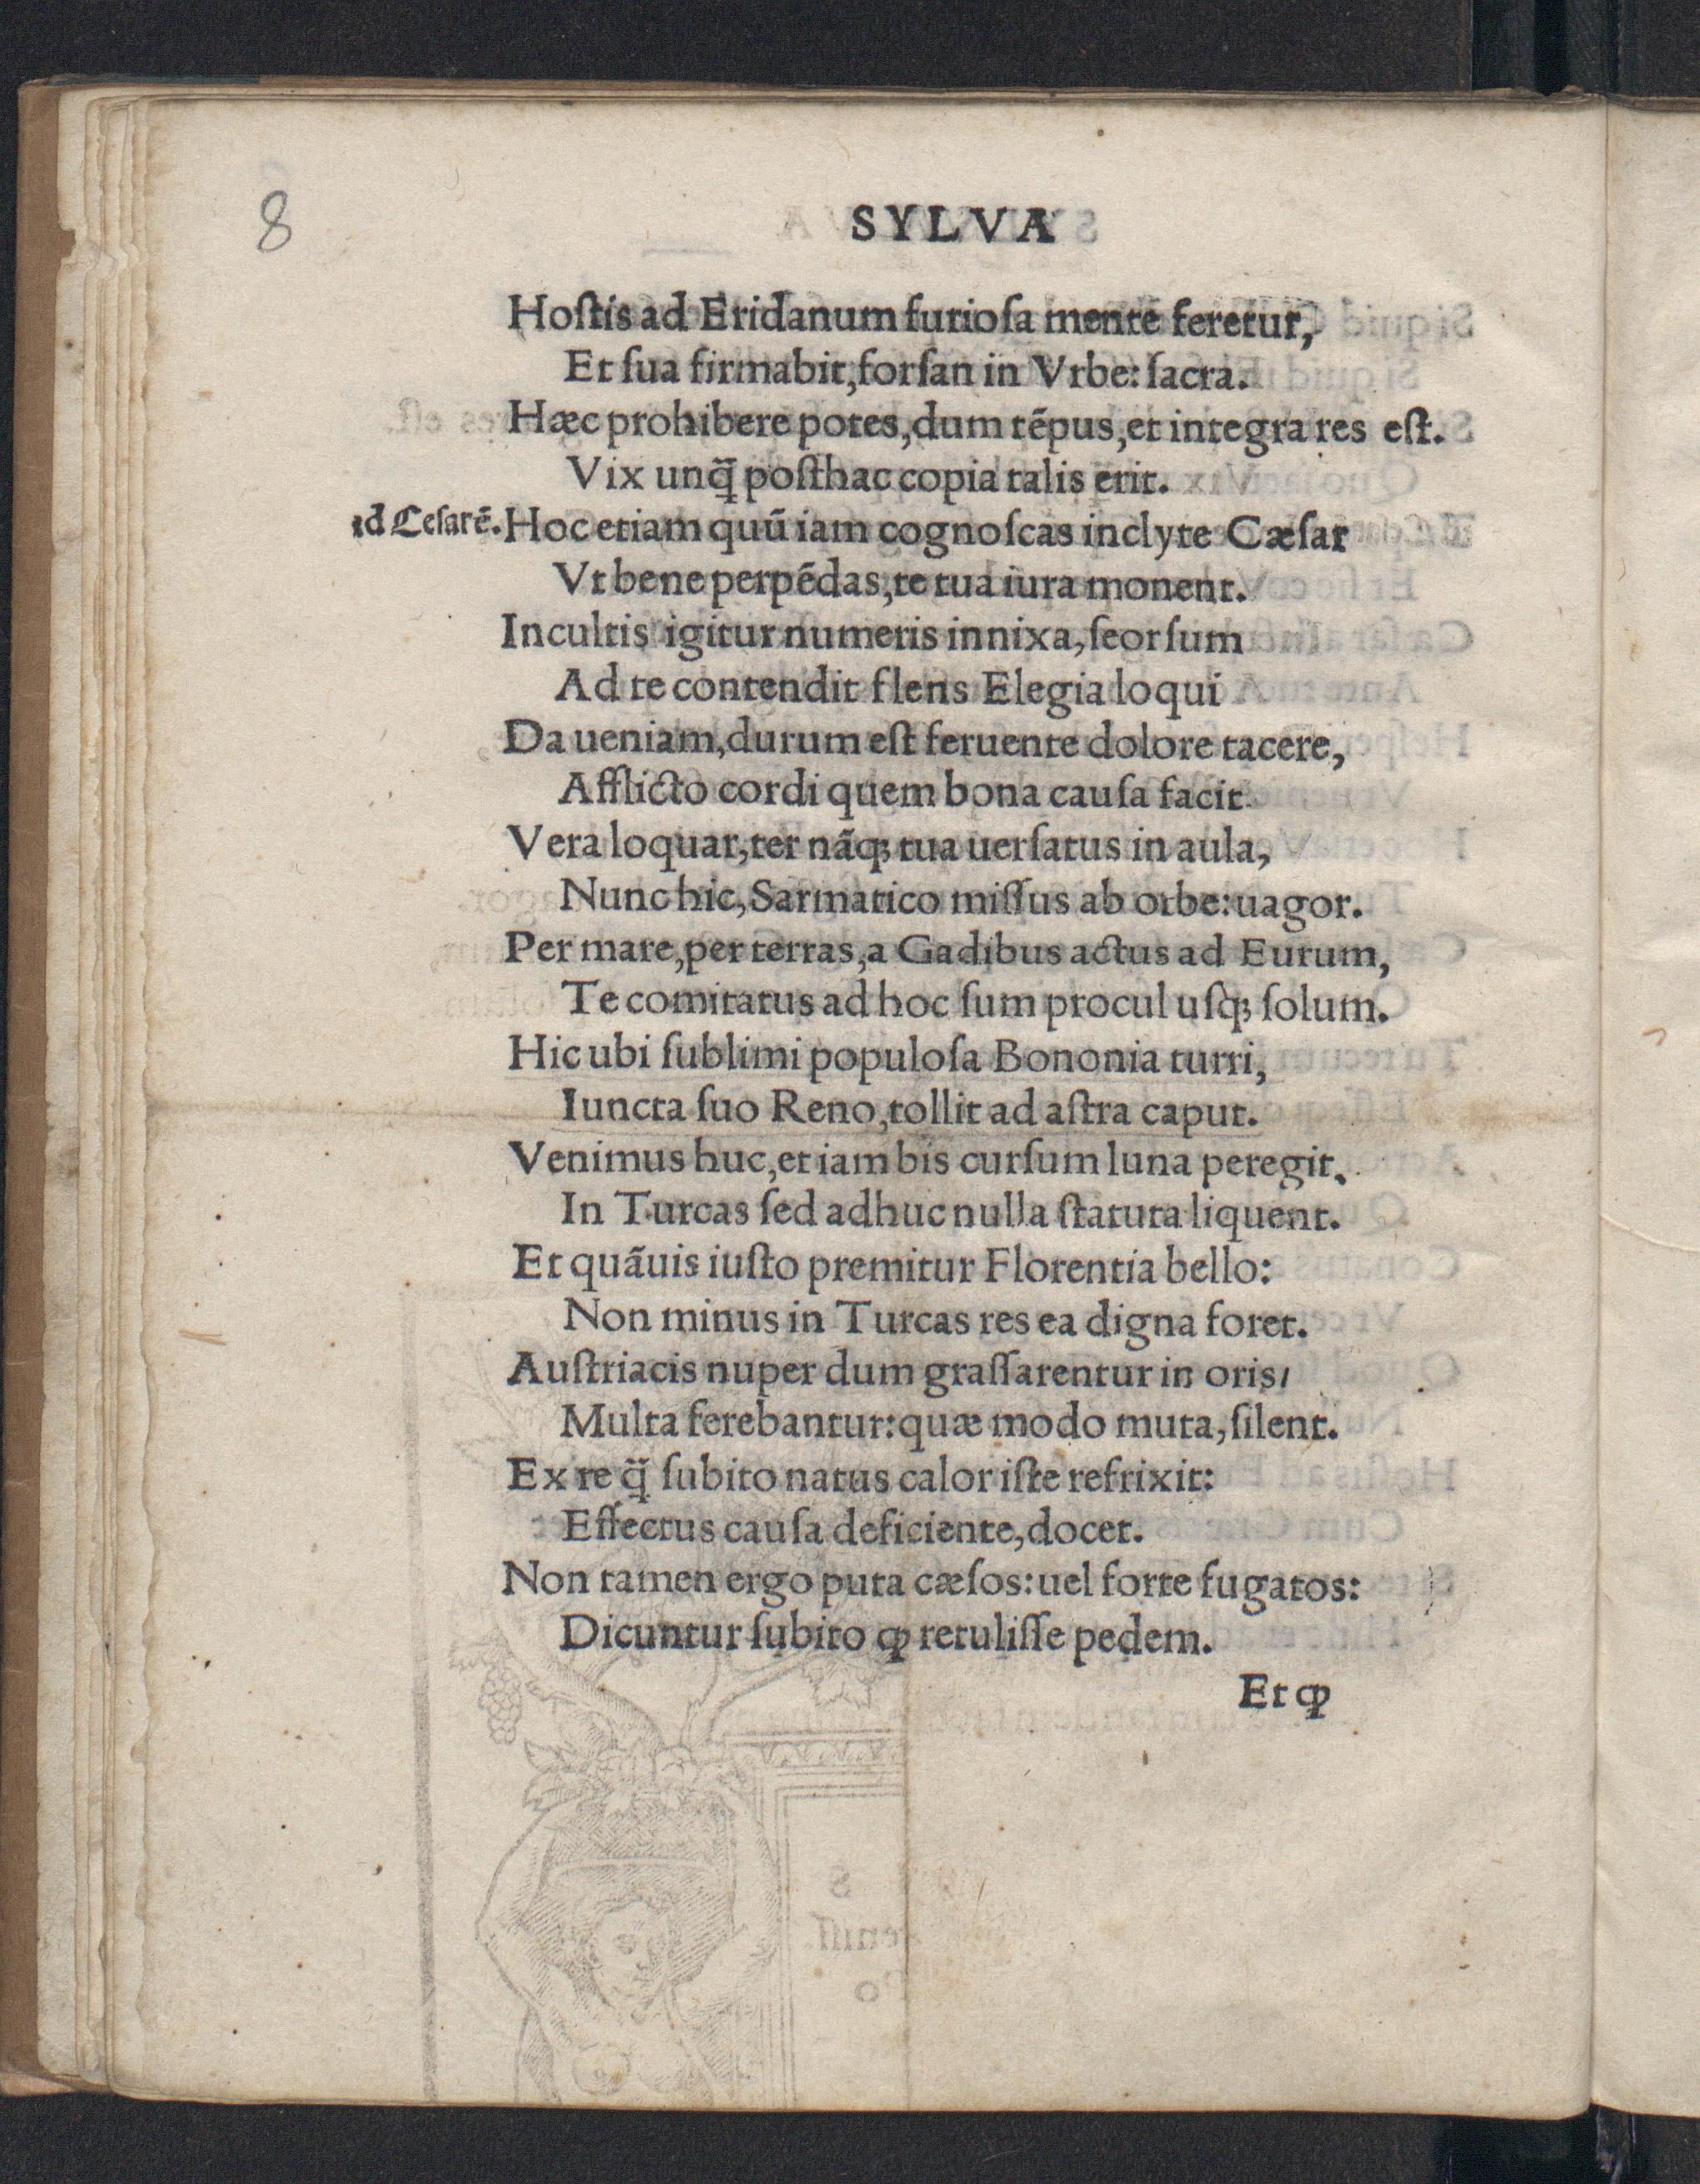 8
SYLVA
Hoſtis ad Eridanum furioſa mente feretur,
Et ſua firmabit, forſan in Vrbe: ſacra.
Hæc prohibere potes, dum tēpus, et integra res eſt.
Vix unq̄ poſthac copia talis erit.
ad Ceſarē. Hoc etiam quū iam cognoſcas inclyte Cæſar
Vt bene perpēdas, te tua iura monent.
Incultis igitur numeris innixa, ſeorſum
Ad te contendit flens Elegia loqui
Da ueniam, durum eſt feruente dolore tacere,
Afflicto cordi quem bona cauſa facit.
Vera loquar, ter nāq; tua uerſatus in aula,
Nunc hic, Sarmatico miſſus ab orbe: uagor.
Per mare, per terras, a Gadibus actus ad Eurum,
Te comitatus ad hoc ſum procul uſq; ſolum.
Hic ubi ſublimi populoſa Bononia turri,
Iuncta ſuo Reno, tollit ad aſtra caput.
Venimus huc, et iam bis curſum luna peregit,
In Turcas ſed adhuc nulla ſtatuta liquent.
Et quāuis iuſto premitur Florentia bello:
Non minus in Turcas res ea digna foret.
Auſtriacis nuper dum graſſarentur in oris/
Multa ferebantur: quæ modo muta, ſilent.
Ex re q̄ ſubito natus calor iſte refrixit:
Effectus cauſa deficiente, docet.
Non tamen ergo puta cæſos: uel forte fugatos:
Dicuntur ſubito ꝙ retuliſſe pedem.
Et ꝙ